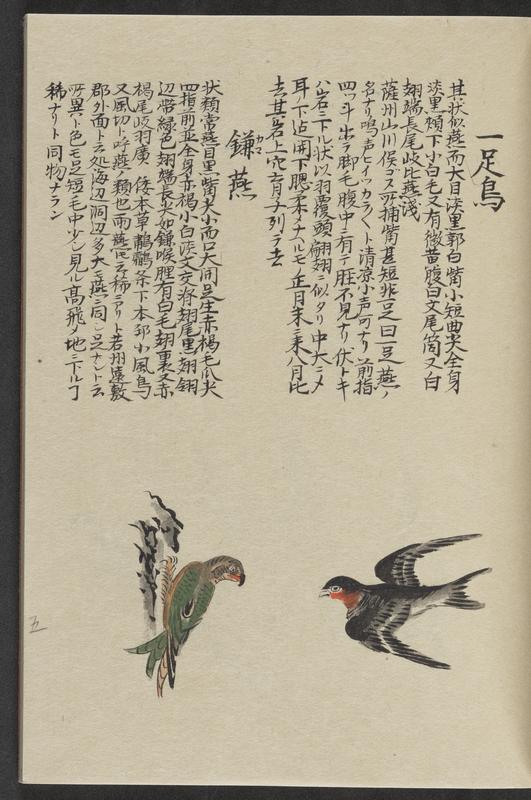 一足鳥
其状似燕而大目淡黒郭白觜小短曲尖全身
淡黒頬下小白毛又有微黄腹白文尾筒又白
翅端長尾岐比燕浅
薩州山川候ゴス所捕觜甚短非足曰一足燕ノ
名ナリ鳴声ヒイツカラ〱ト清凉小声可ナリ前指
四ツ斗出ラ脚毛腹中ニ有テ脛不見ナリ伏トキ
ハ岩ニ下ル状以羽覆頭翩翅ニ似タリ中大ニメ
耳ノ下迠開下腮柔メナルモノ正月末ニ来八月比
去其岩上穴六月子列ラ去
鎌燕
カマ
状類常燕目黒觜尖小而口大開足生赤褐毛爪尖
四指前並全身赤褐小白淡文交脊翅尾黒翅錯
辺帯緑色翅端長尖如鎌喉腥有白毛翅裏又赤
褐尾岐羽廣 倭本草鸊鷉条下本邦小風鳥
又風切ト呼燕ノ類也雨燕トモ云稀ニアリト若州遠敷
郡外面ト云処海辺洞辺多大キ燕ニ同シ足ナシト云
所異ハト色モ足短ク毛中少シ見ル高飛メ地ニ下ル丁
稀ナリト同物ナラン
五